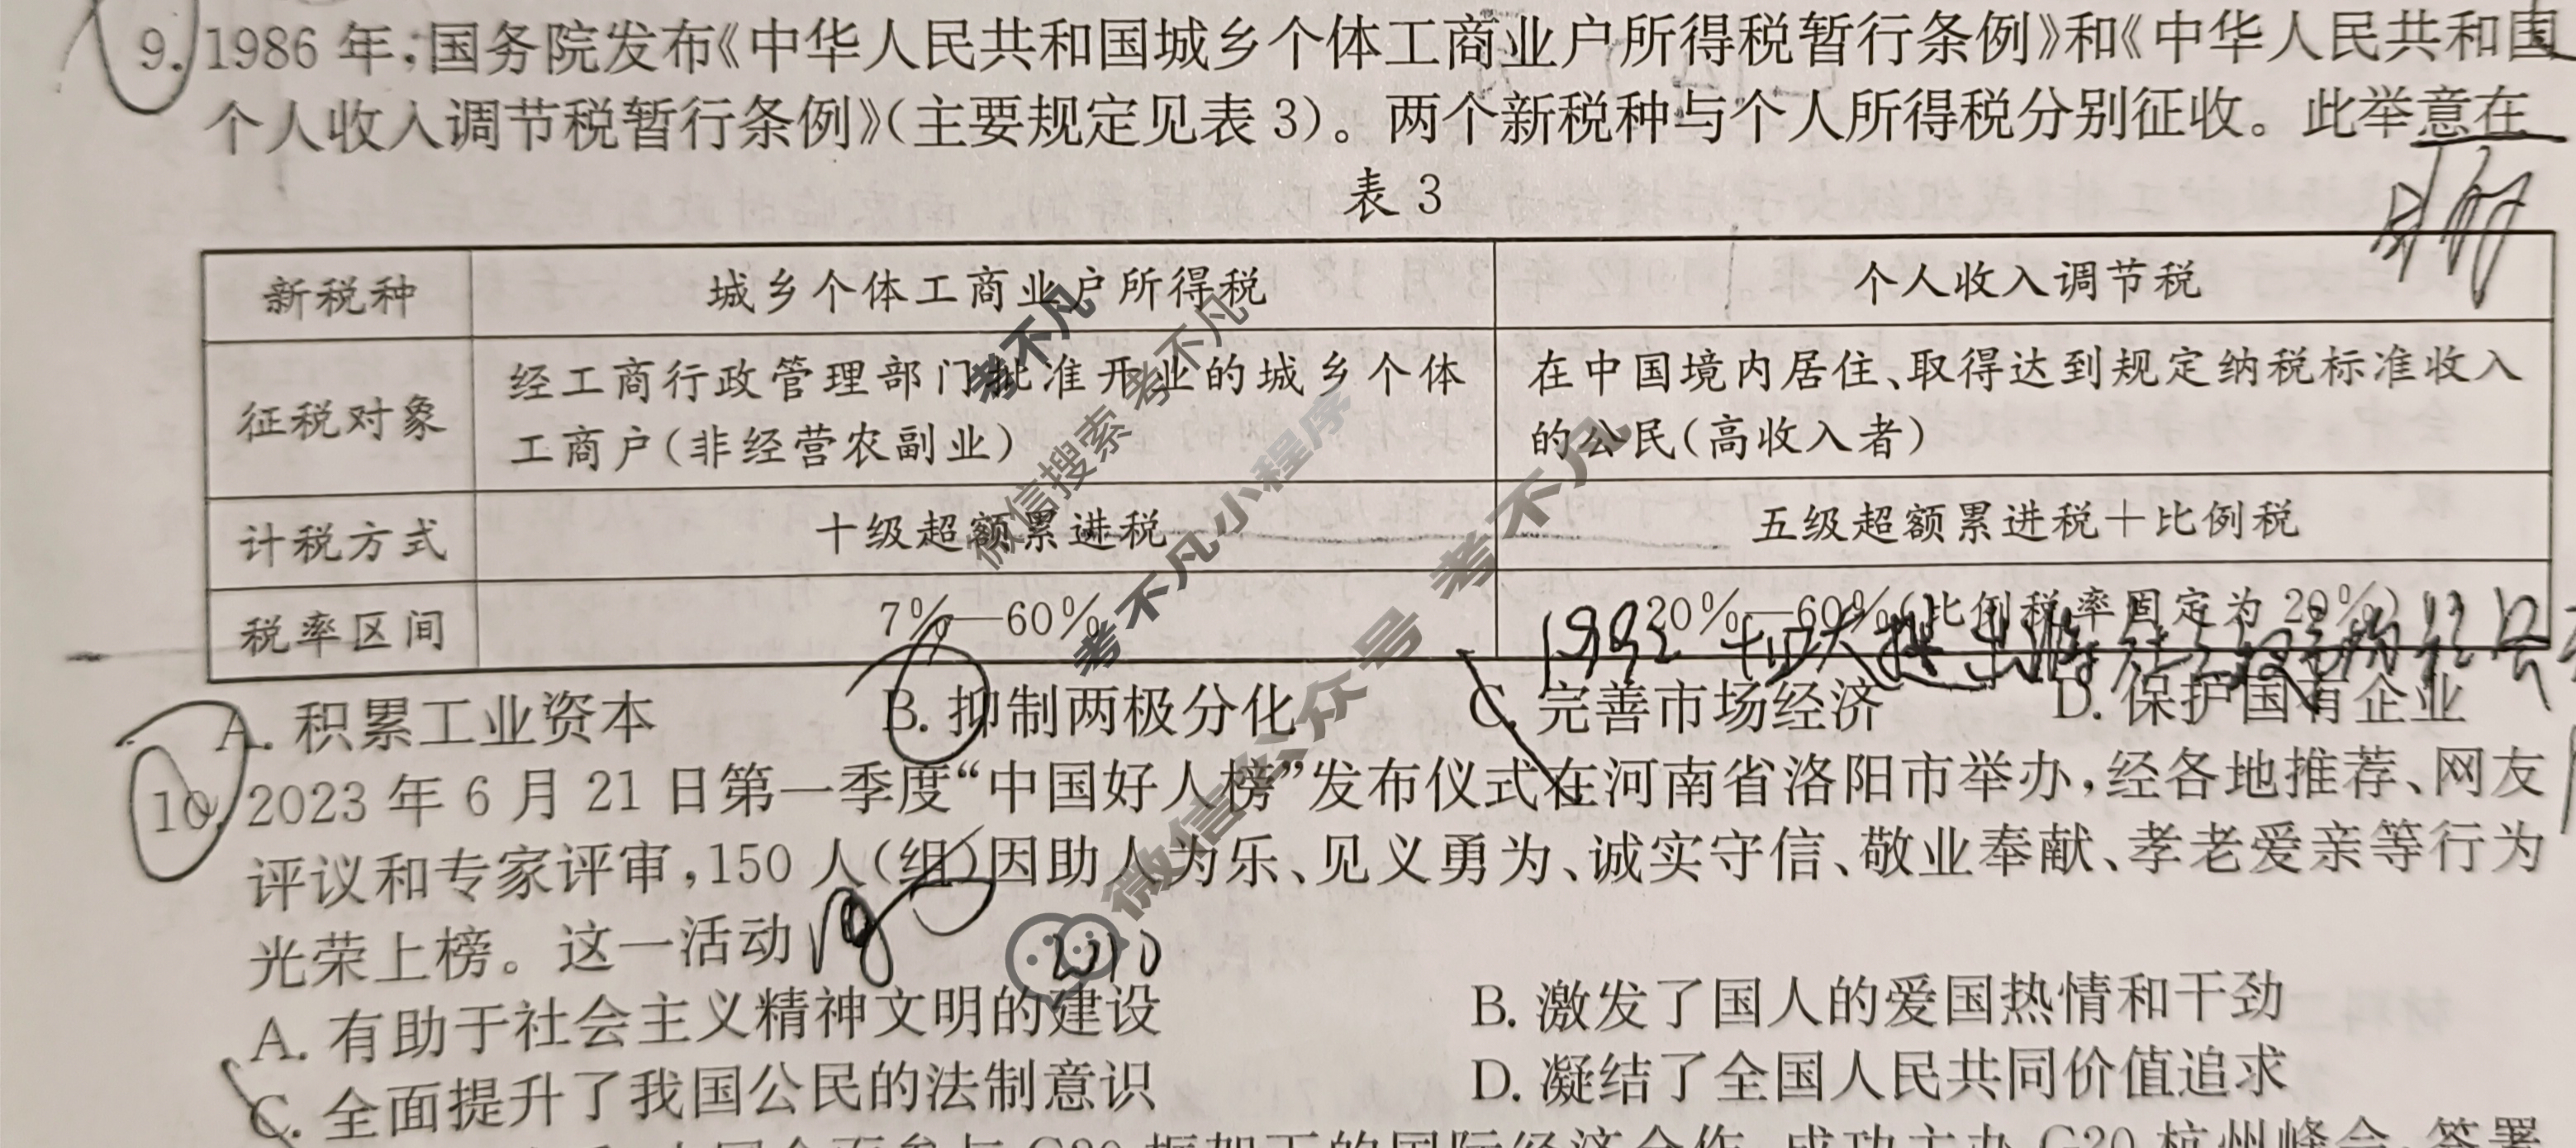 9. 1986 年,国务院发布《中华人民共和国城乡个体工商业户所得税暂行条例》和《中华人民共和国
个人收入调节税暂行条例》(主要规定见表 3)。两个新税种与个人所得税分别征收。此举意在
表 3
新税种 城乡个体工商业户所得税 个人收入调节税
征税对象 经工商行政管理部门批准开业的城乡个体 在中国境内居住、取得达到规定纳税标准收入
工商户(非经营农副业) 的公民(高收入者)
计税方式 十级超额累进税 五级超额累进税+比例税
税率区间 7%—60% 20%—60%(比例税率固定为 20%)
1992 十四大提出
A. 积累工业资本 B. 抑制两极分化 C. 完善市场经济 D. 保护国有企业
10. 2023 年 6 月 21 日第一季度“中国好人榜”发布仪式在河南省洛阳市举办,经各地推荐、网友
评议和专家评审,150 人(组)因助人为乐、见义勇为、诚实守信、敬业奉献、孝老爱亲等行为
光荣上榜。这一活动
A. 有助于社会主义精神文明的建设 B. 激发了国人的爱国热情和干劲
C. 全面提升了我国公民的法制意识 D. 凝结了全国人民共同价值追求
考不凡
微信搜索 考不凡
考不凡小程序
微信公众号 考不凡